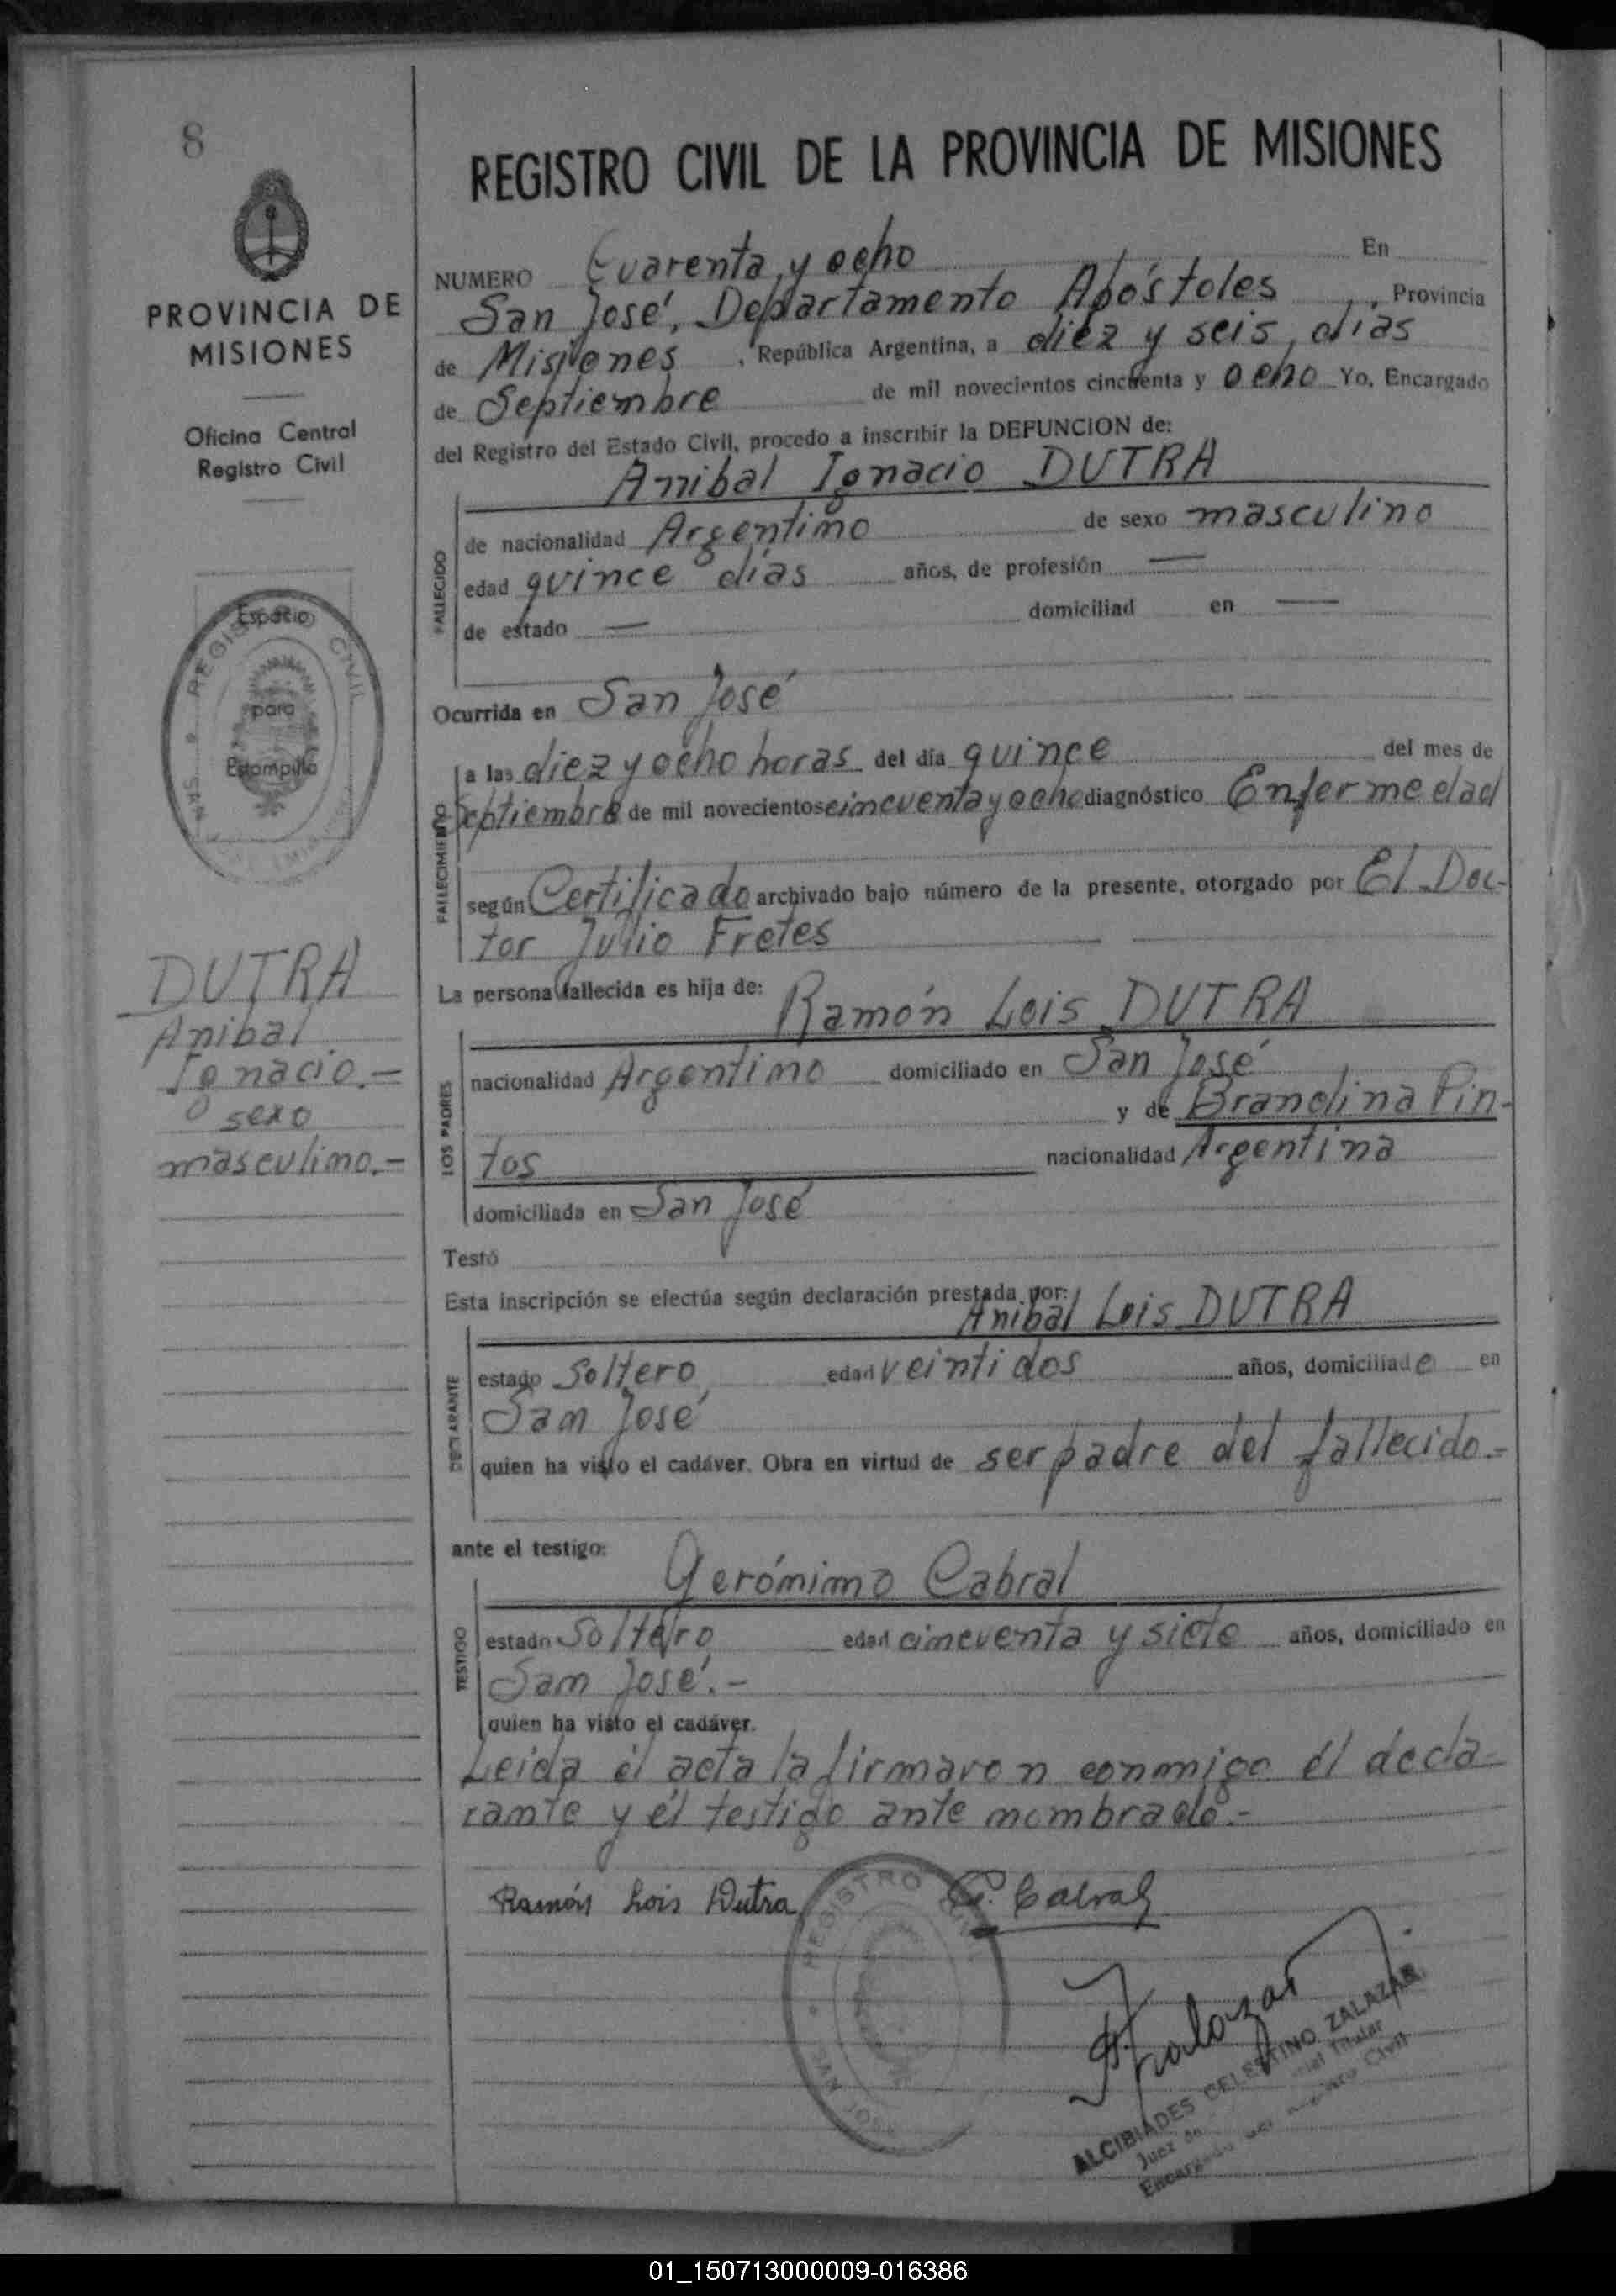 8
PROVINCIA DE
MISIONES
Oficina Central
Registro Civil
Espacio
para
Estampilla
REGISTRO CIVIL
SAN
DUTRA
Anibal
Ignacio.-
sexo
masculino.-
REGISTRO CIVIL DE LA PROVINCIA DE MISIONES
NUMERO Cuarenta y ocho En
San José, Departamento Apóstoles, Provincia
de Misiones, República Argentina, a diez y seis días
de Septiembre de mil novecientos cincuenta y ocho Yo, Encargado
del Registro del Estado Civil, procedo a inscribir la DEFUNCION de:
Anibal Ignacio DUTRA
FALLECIDO
de nacionalidad Argentino de sexo masculino
edad quince días años, de profesión —
de estado — domiciliad en —
Ocurrida en San José
FALLECIMIENTO
a las diez y ocho horas del día quince del mes de
Septiembre de mil novecientos cincuenta y ocho diagnóstico Enfermedad
según Certificado archivado bajo número de la presente, otorgado por El Doc-
tor Julio Fretes
La persona fallecida es hija de:
Ramón Lois DUTRA
LOS PADRES
nacionalidad Argentino domiciliado en San José
y de Brandina Pin-
tos nacionalidad Argentina
domiciliada en San José
Testó
Esta inscripción se efectúa según declaración prestada por:
Anibal Lois DUTRA
DECLARANTE
estado Soltero, edad veintidos años, domiciliado en
San José
quien ha visto el cadáver. Obra en virtud de ser padre del fallecido.-
ante el testigo:
Gerónimo Cabral
TESTIGO
estado Soltero, edad cincuenta y siete años, domiciliado en
San José.-
quien ha visto el cadáver.
Leida el acta la firmaron conmigo él decla-
rante y él testigo ante nombrado.-
Ramón Lois Dutra G. Cabral
REGISTRO
SAN JOSE
A. Zalazar
ALCIBIADES CELESTINO ZALAZAR
Juez de Titular
Encargado Registro Civil
01_150713000009-016386